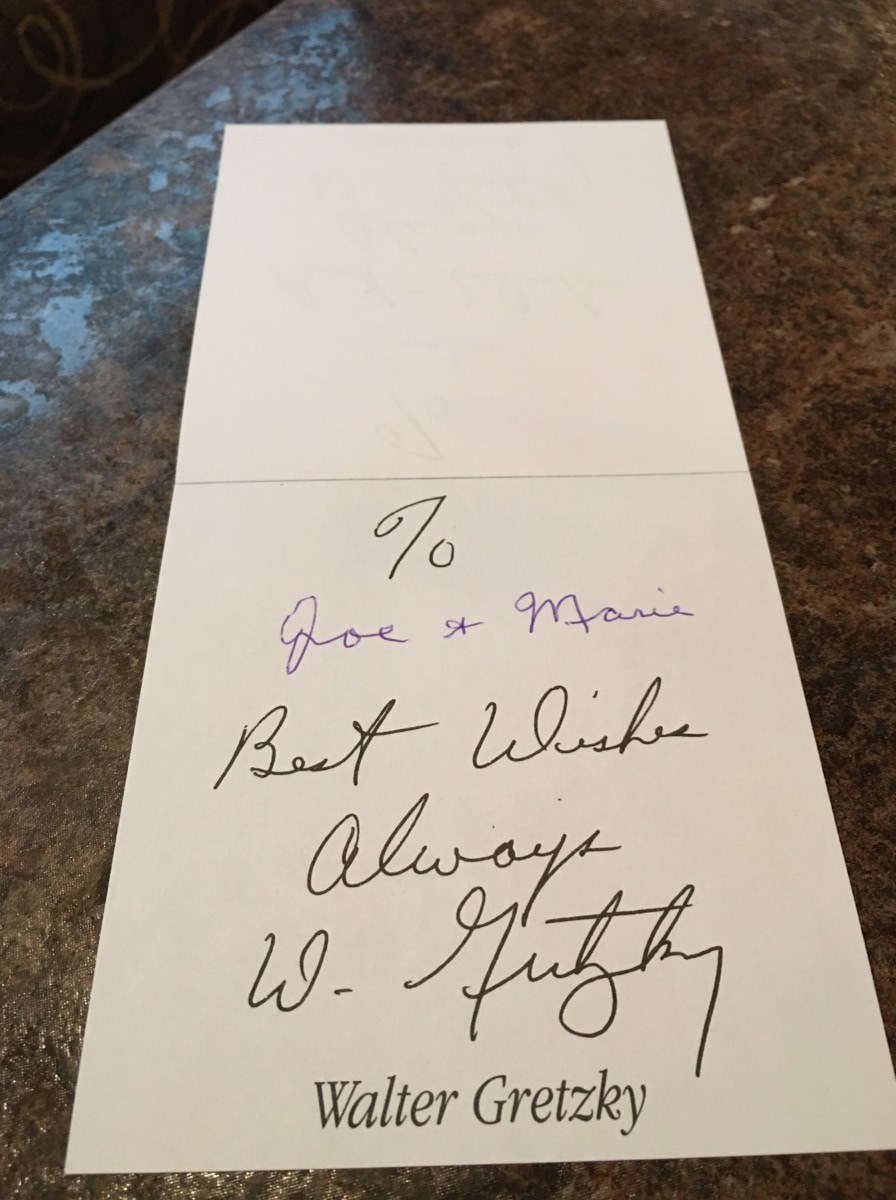 To
Joe + Marie
Best Wishes
Always
W. Gretzky
Walter Gretzky